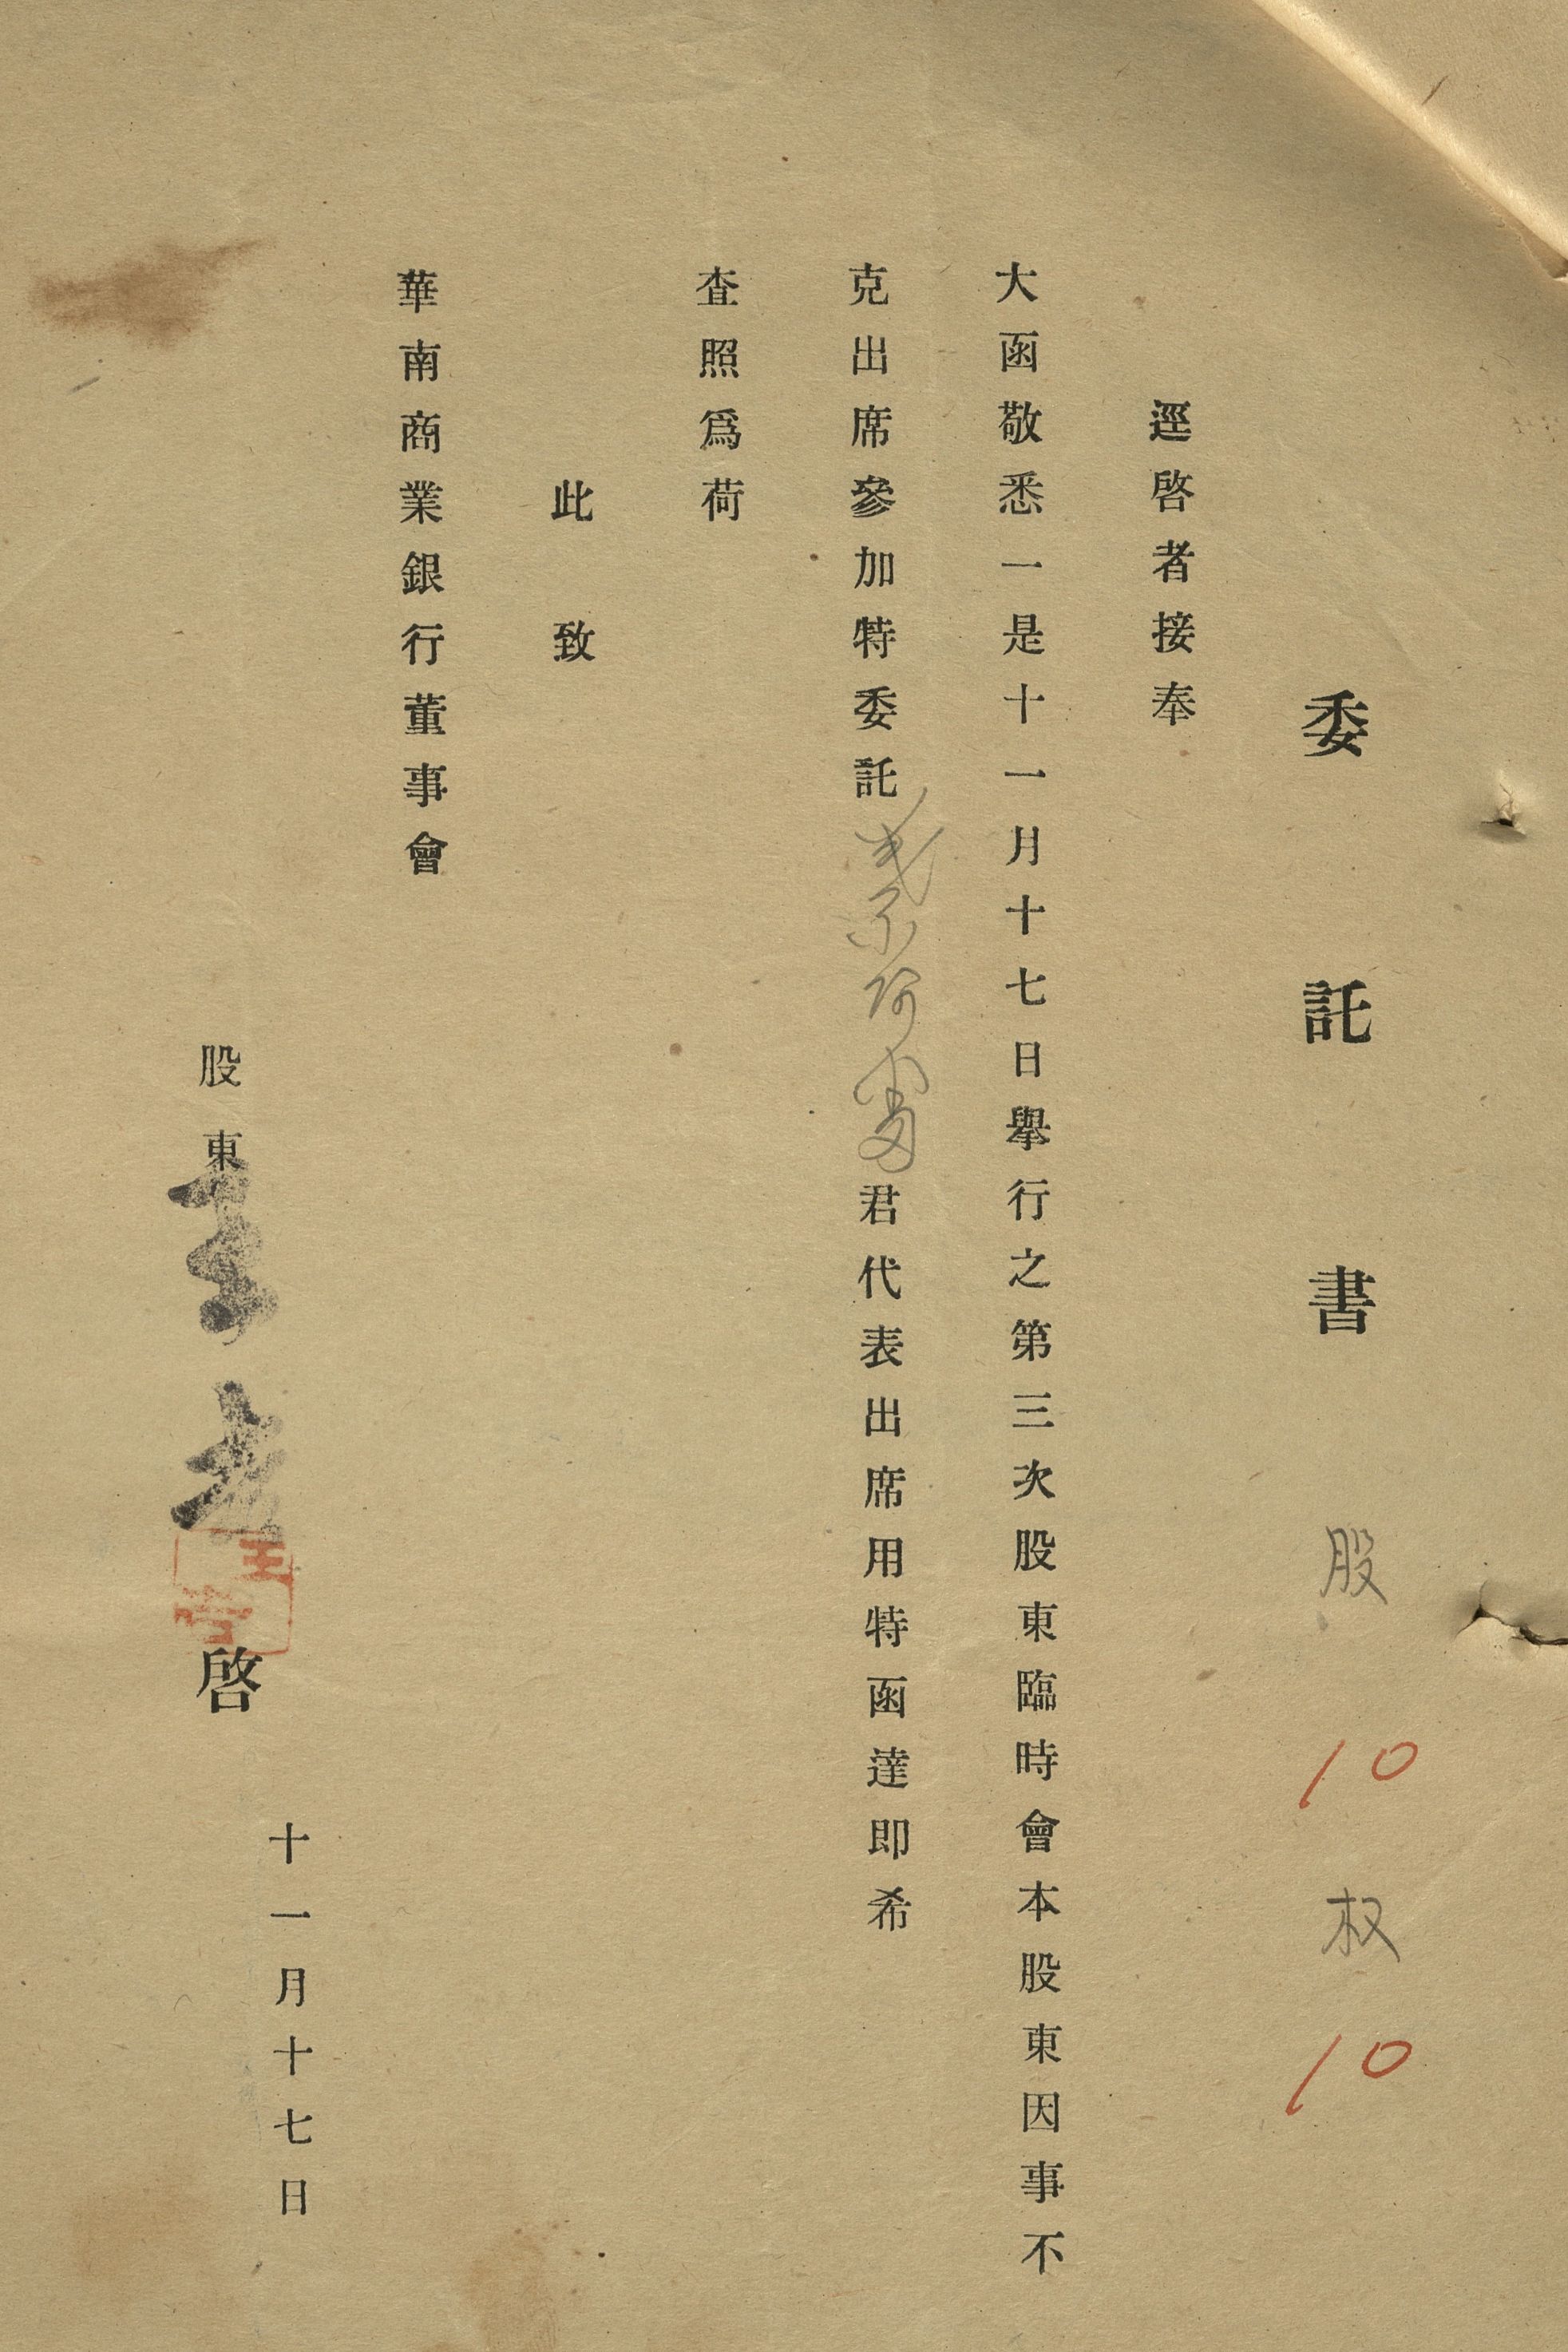 委託書 股 10 权 10
逕啓者接奉
大函敬悉一是十一月十七日舉行之第三次股東臨時會本股東因事不
克出席參加特委託 君代表出席用特函達即希
査照爲荷
此致
華南商業銀行董事會
股東 啓
十一月十七日